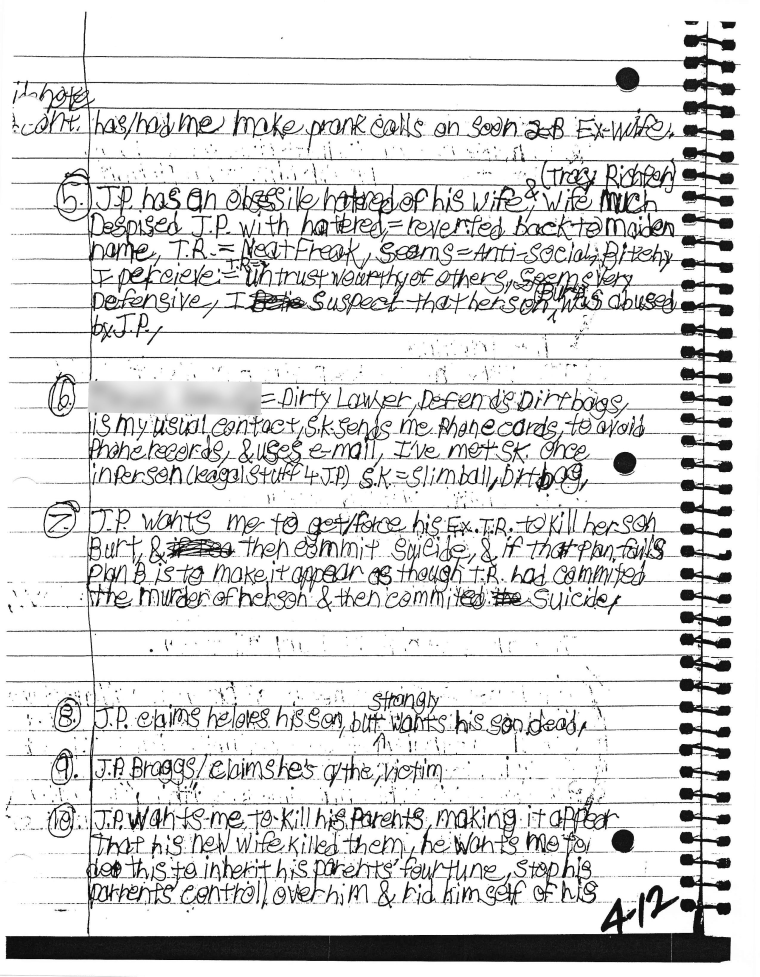 cont. has/had me make prank calls on soon 2-B Ex-wife,
(Tracy Richter)
5. J.P. has an obsessive hatered of his wife & wife much
Despised J.P. with hatered = reverted back to maiden
name, T.R. = Neat Freak, Seams = Anti-social, Bitchy
I percieve = T.R.= untrustwourthy of others, Seems very
Defensive, I suspect that her son, Burt, was abused
by J.P.,
6. = Dirty Lawyer, Defends Dirtbags,
is my usual contact, S.K. sends me Phone cards, to avoid
Phone records, & uses e-mail, I've met S.K. once
inperson (leagal stuff 4 J.P.) S.K. = Slimball, Dirtbag,
7. J.P. wants me to get/force his Ex. T.R. to kill her son
Burt, & then commit suicide, & if that Plan fails
Plan B is to make it appear as though T.R. had commited
the murder of her son & then commited Suicide,
8. J.P. claims he loves his son, but strongly wants his son dead,
9. J.P. Braggs/claims he's a/the, victim
10. J.P. wants me to kill his Parents, making it appear
That his new wife killed them, he wants me to
do this to inherit his parents' fourtune, stop his
parrents control, over him & rid himself of his
4-12